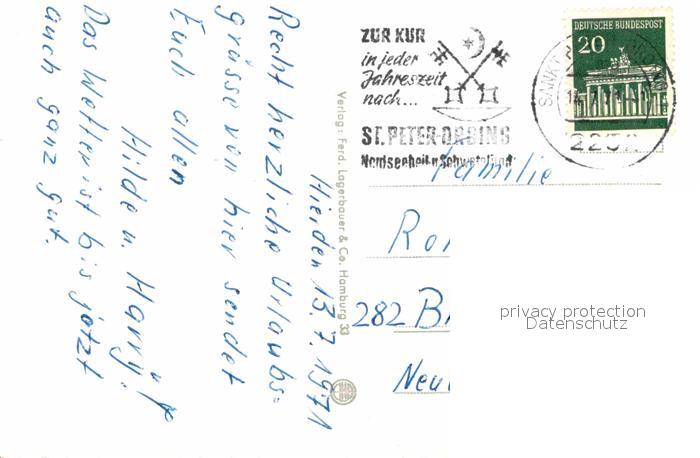 Hier, den 13.7.1971
Recht herzliche Urlaubs-
grüsse von hier sendet
Euch allen
Hilde u. Harry!
Das Wetter ist bis jetzt
auch ganz gut.
Verlag: Ferd. Lagerbauer & Co. Hamburg 33
ZUR KUR
in jeder
Jahreszeit
nach...
ST. PETER-ORDING
Nordseeheil- u. Schwefelbad
DEUTSCHE BUNDESPOST
20
SANKT
2252
Familie
282 B
privacy protection
Datenschutz